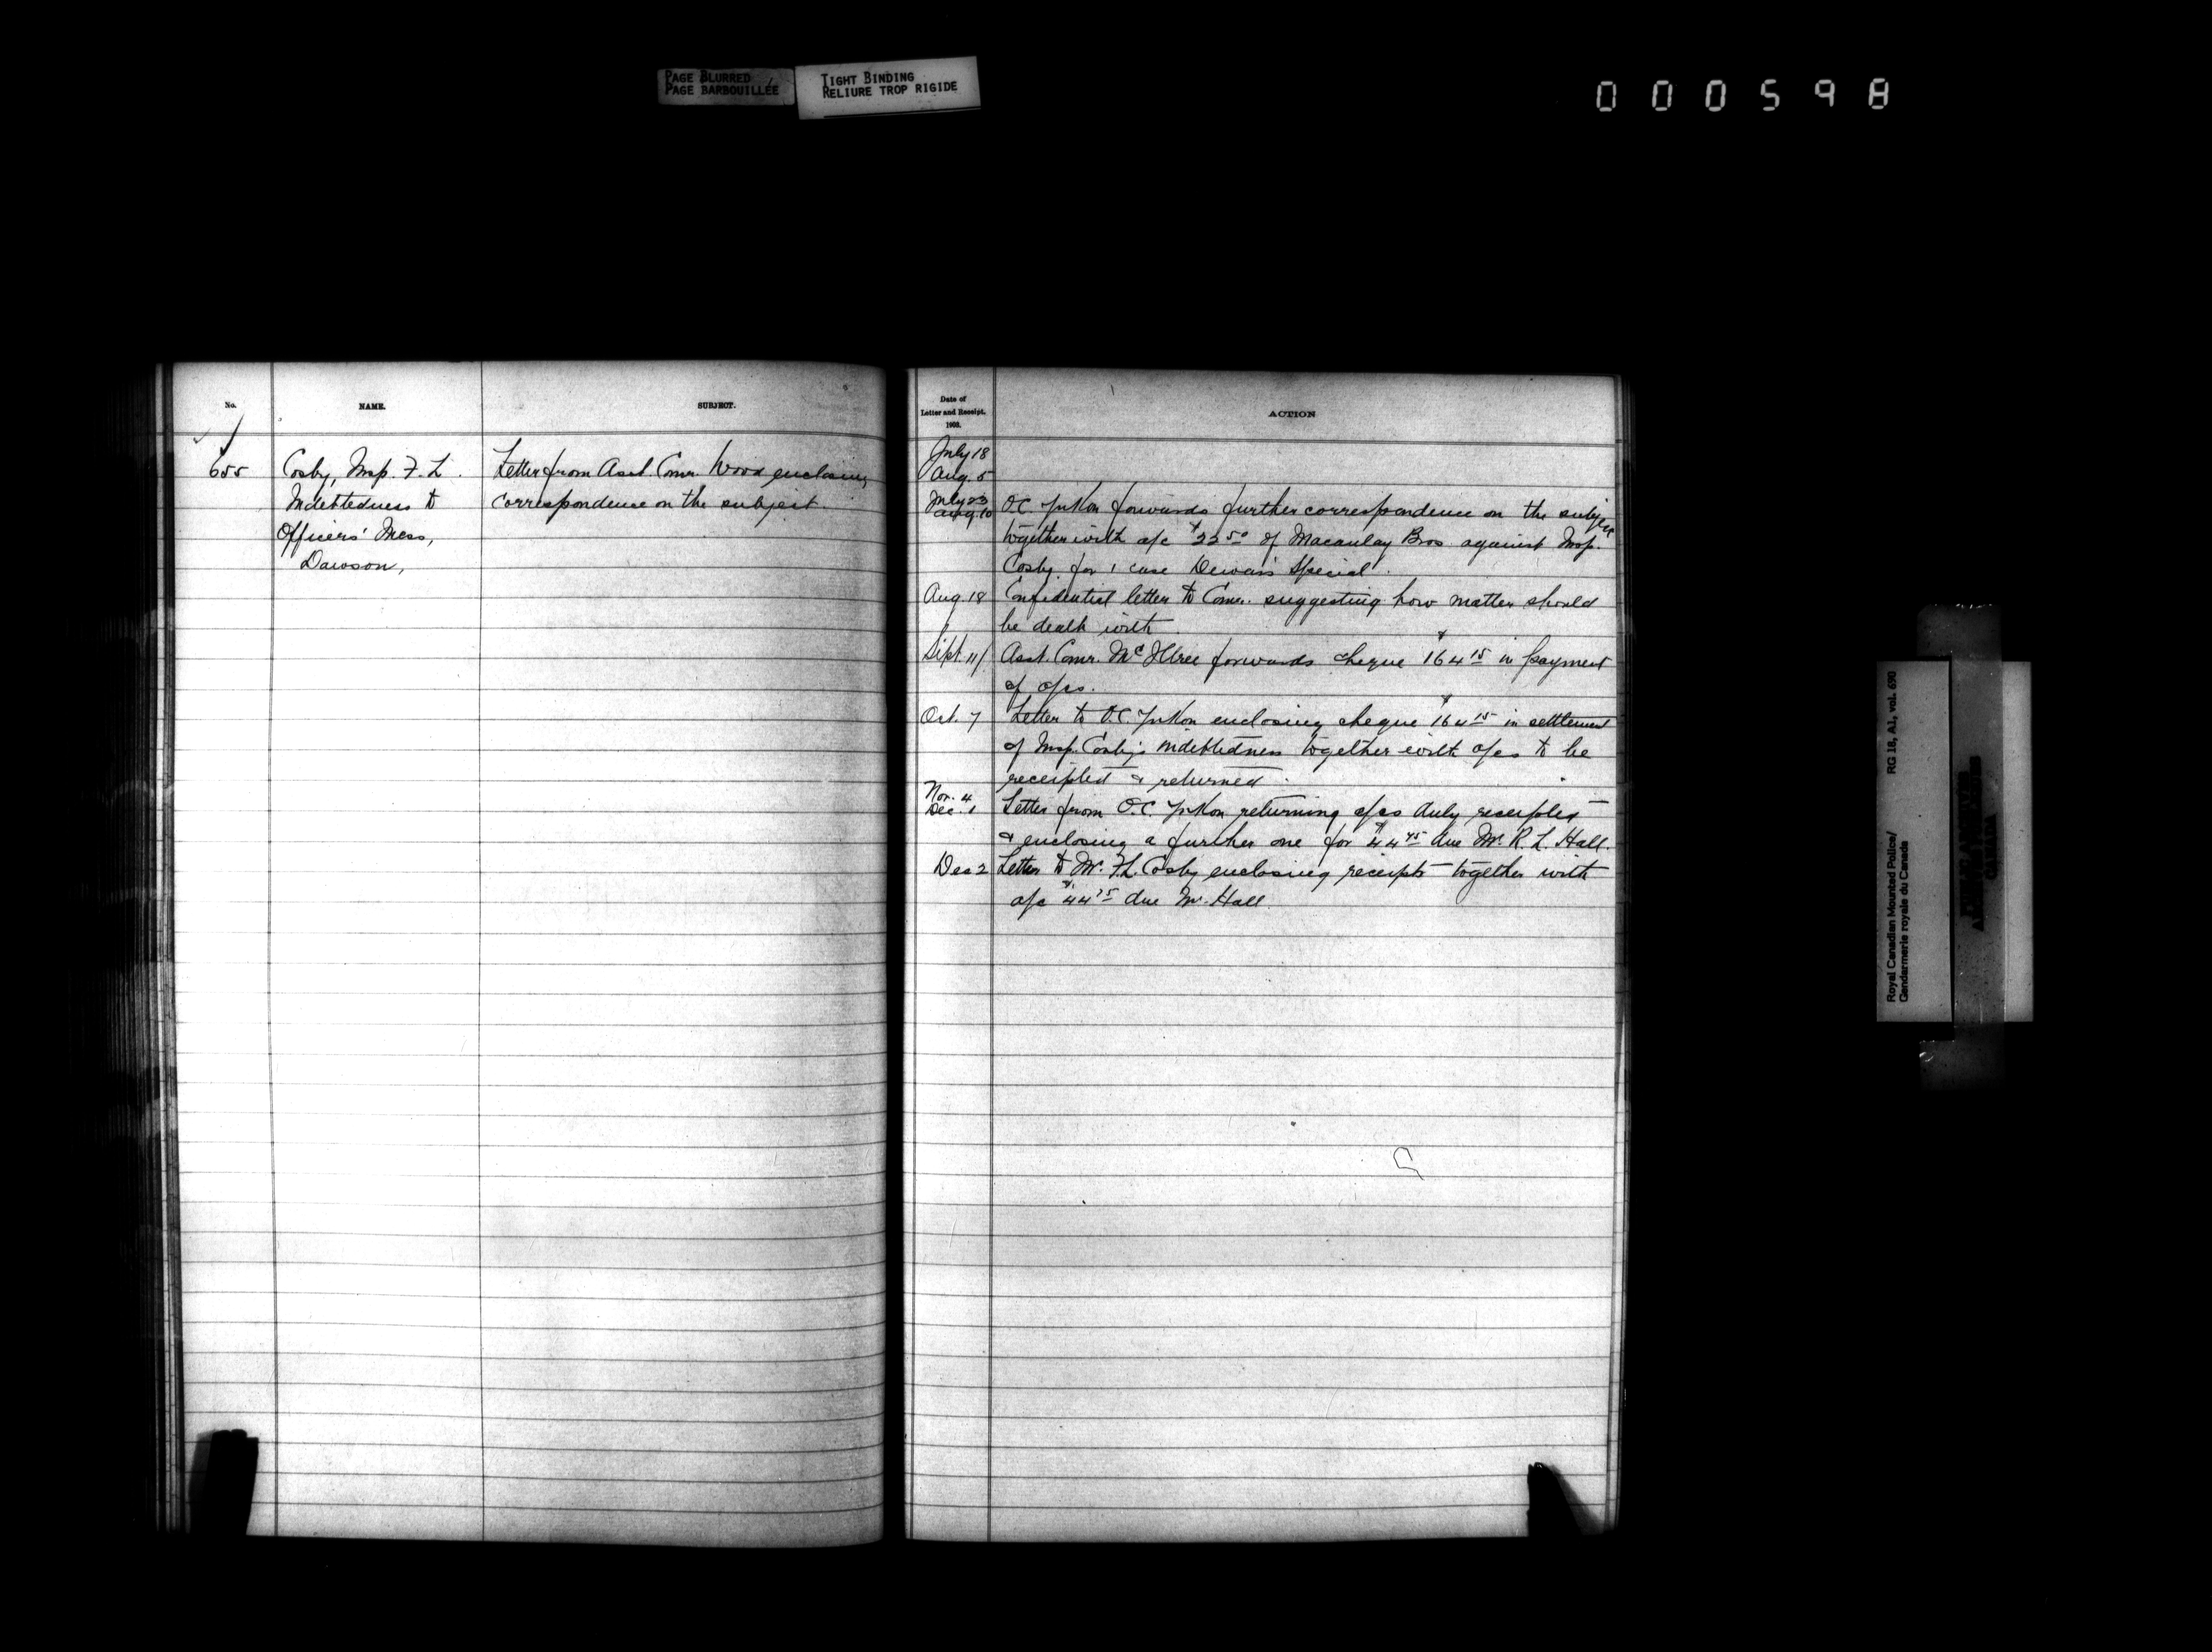 PAGE BLURRED
PAGE BARBOUILLÉE
TIGHT BINDING
RELIURE TROP RIGIDE
000598
No.
NAME.
SUBJECT.
655
Cosby, Insp. F. L.
Indebtedness to
Officers' Mess,
Dawson,
Letter from Asst. Comr. Wood enclosing
correspondence on the subject.
Date of
Letter and Receipt.
1902.
ACTION
July 18
Aug. 5
July 23
Aug. 10
O.C. Yukon forwards further correspondence on the subject
together with a/c $22 50 of Macaulay Bros. against Insp.
Cosby for 1 case Dewar's Special.
Aug. 18 Confidential letter to Comr. suggesting how matter should
be dealt with.
Sept. 11/ Asst. Comr. McIllree forwards cheque $164 15 in payment
of a/cs.
Oct. 7 Letter to O.C. Yukon enclosing cheque $164 15 in settlement
of Insp. Cosby's indebtedness together with a/cs to be
receipted & returned.
Nov. 4
Dec. 1
Letter from O.C. Yukon returning a/cs duly receipted
& enclosing a further one for $44 75 due Mr. R. L. Hall.
Dec 2 Letter to Mr. F.L. Cosby enclosing receipts together with
a/c $44 75 due Mr. Hall.
Royal Canadian Mounted Police/
Gendarmerie royale du Canada
RG 18, A1, vol. 690